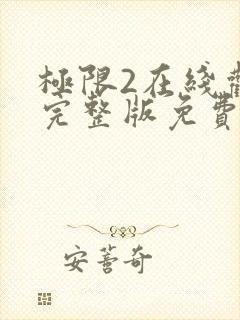 極限2在綫
完整版免費
安蓍奇